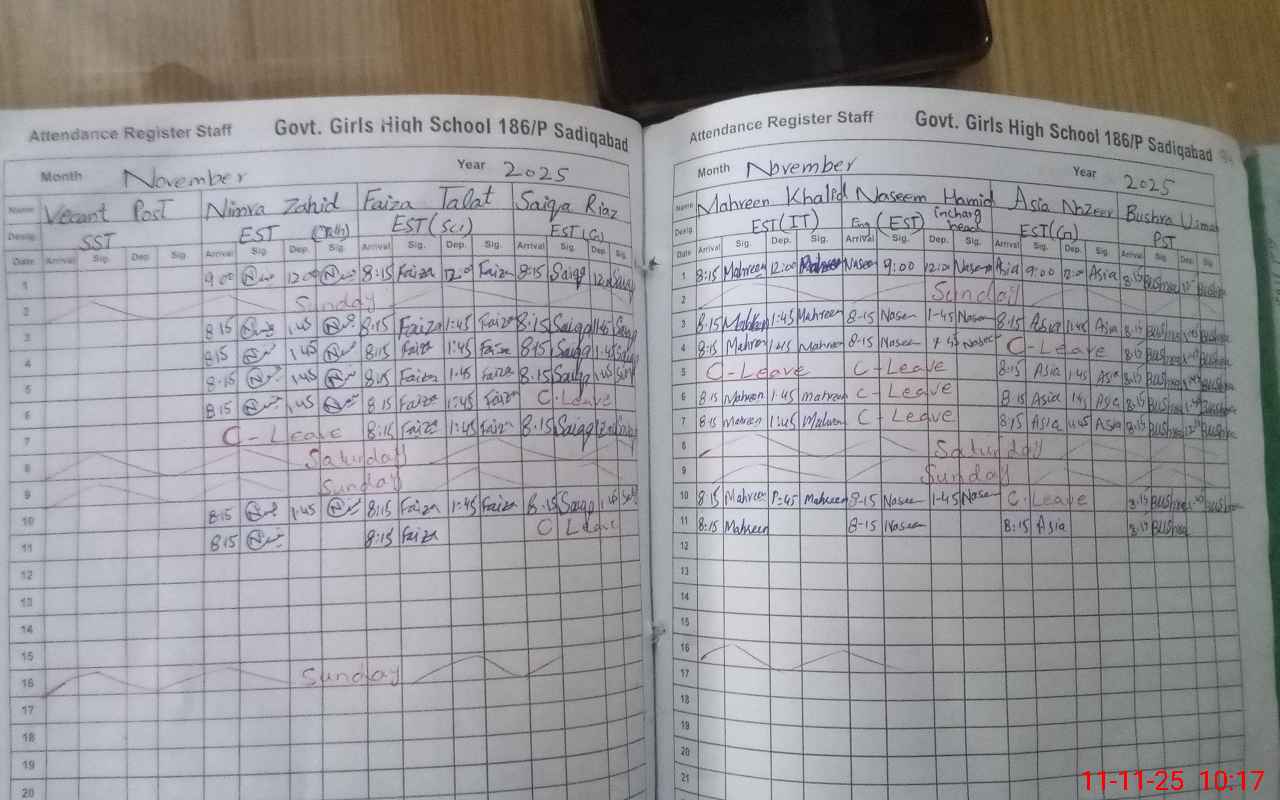 Attendance Register Staff Govt. Girls High School 186/P Sadiqabad
Month November Year 2025
Name Vecant Post Nimra Zahid Faiza Talat Saiqa Riaz
Desig. SST EST EST (Sci)
Date Arrival Sig. Dep. Sig. Arrival Sig. Dep. Sig. Arrival Sig. Dep. Sig. Arrival Sig. Dep. Sig.
1 9:00 12:00 8:15 Faiza 12:00 Faiza 8:15 Saiqa
2 Sunday
3 8:15 1:45 8:15 Faiza 1:45 Faiza 8:15 Saiqa 1:45
4 8:15 1:45 8:15 Faiza 1:45 Faiza 8:15 Saiqa 1:45
5 8:15 1:45 8:15 Faiza 1:45 Faiza 8:15 Saiqa 1:45
6 8:15 1:45 8:15 Faiza 1:45 Faiza C-Leave
7 C-Leave 8:15 Faiza 1:45 Faiza 8:15 Saiqa
8 Saturday
9 Sunday
10 8:15 1:45 8:15 Faiza 1:45 Faiza 8:15 Saiqa
11 8:15 8:15 Faiza C Leave
12
13
14
15
16 Sunday
17
18
19
20
Attendance Register Staff Govt. Girls High School 186/P Sadiqabad
Month November Year 2025
Name Mahreen Khalid Naseem Hamid Asia Nazeer Bushra Usman
Desig. EST (IT) Eng (EST) incharg head EST (G) PST
Date Arrival Sig. Dep. Sig. Arrival Sig. Dep. Sig. Arrival Sig. Dep. Sig. Arrival Sig. Dep. Sig.
1 8:15 Mahreen 12:00 Mahreen Naseem 9:00 12:00 Naseem Asia 9:00 12:00 Asia 8:15 Bushra Bushra
2 Sunday
3 8:15 Mahreen 1:45 Mahreen 8-15 Naseem 1-45 Naseem 8:15 Asia 1:45 Asia 8:15 Bushra Bushra
4 8:15 Mahreen 1:45 Mahreen 8-15 Naseem 1-45 Naseem C-Leave 8:15 Bushra Bushra
5 C-Leave C-Leave 8:15 Asia 1:45 Asia 8:15 Bushra Bushra
6 8:15 Mahreen 1:45 mahreen C-Leave 8:15 Asia 1:45 Asia 8:15 Bushra Bushra
7 8:15 Mahreen 1:45 Mahreen C-Leave 8:15 Asia 1:45 Asia 8:15 Bushra Bushra
8 Saturday
9 Sunday
10 8:15 Mahreen 1:45 Mahreen 8-15 Naseem 1-45 Naseem C-Leave 8:15 Bushra Bushra
11 8:15 Mahreen 8-15 Naseem 8:15 Asia 8:15 Bushra
12
13
14
15
16
17
18
19
20
21
11-11-25 10:17